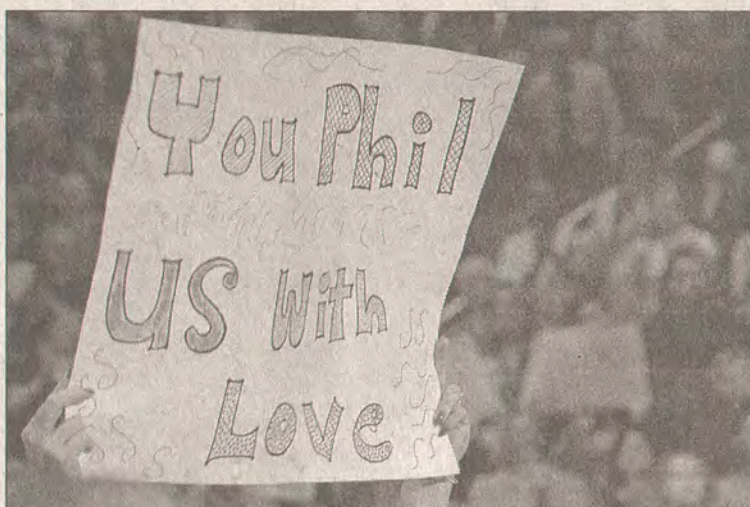 You Phil
US With
Love